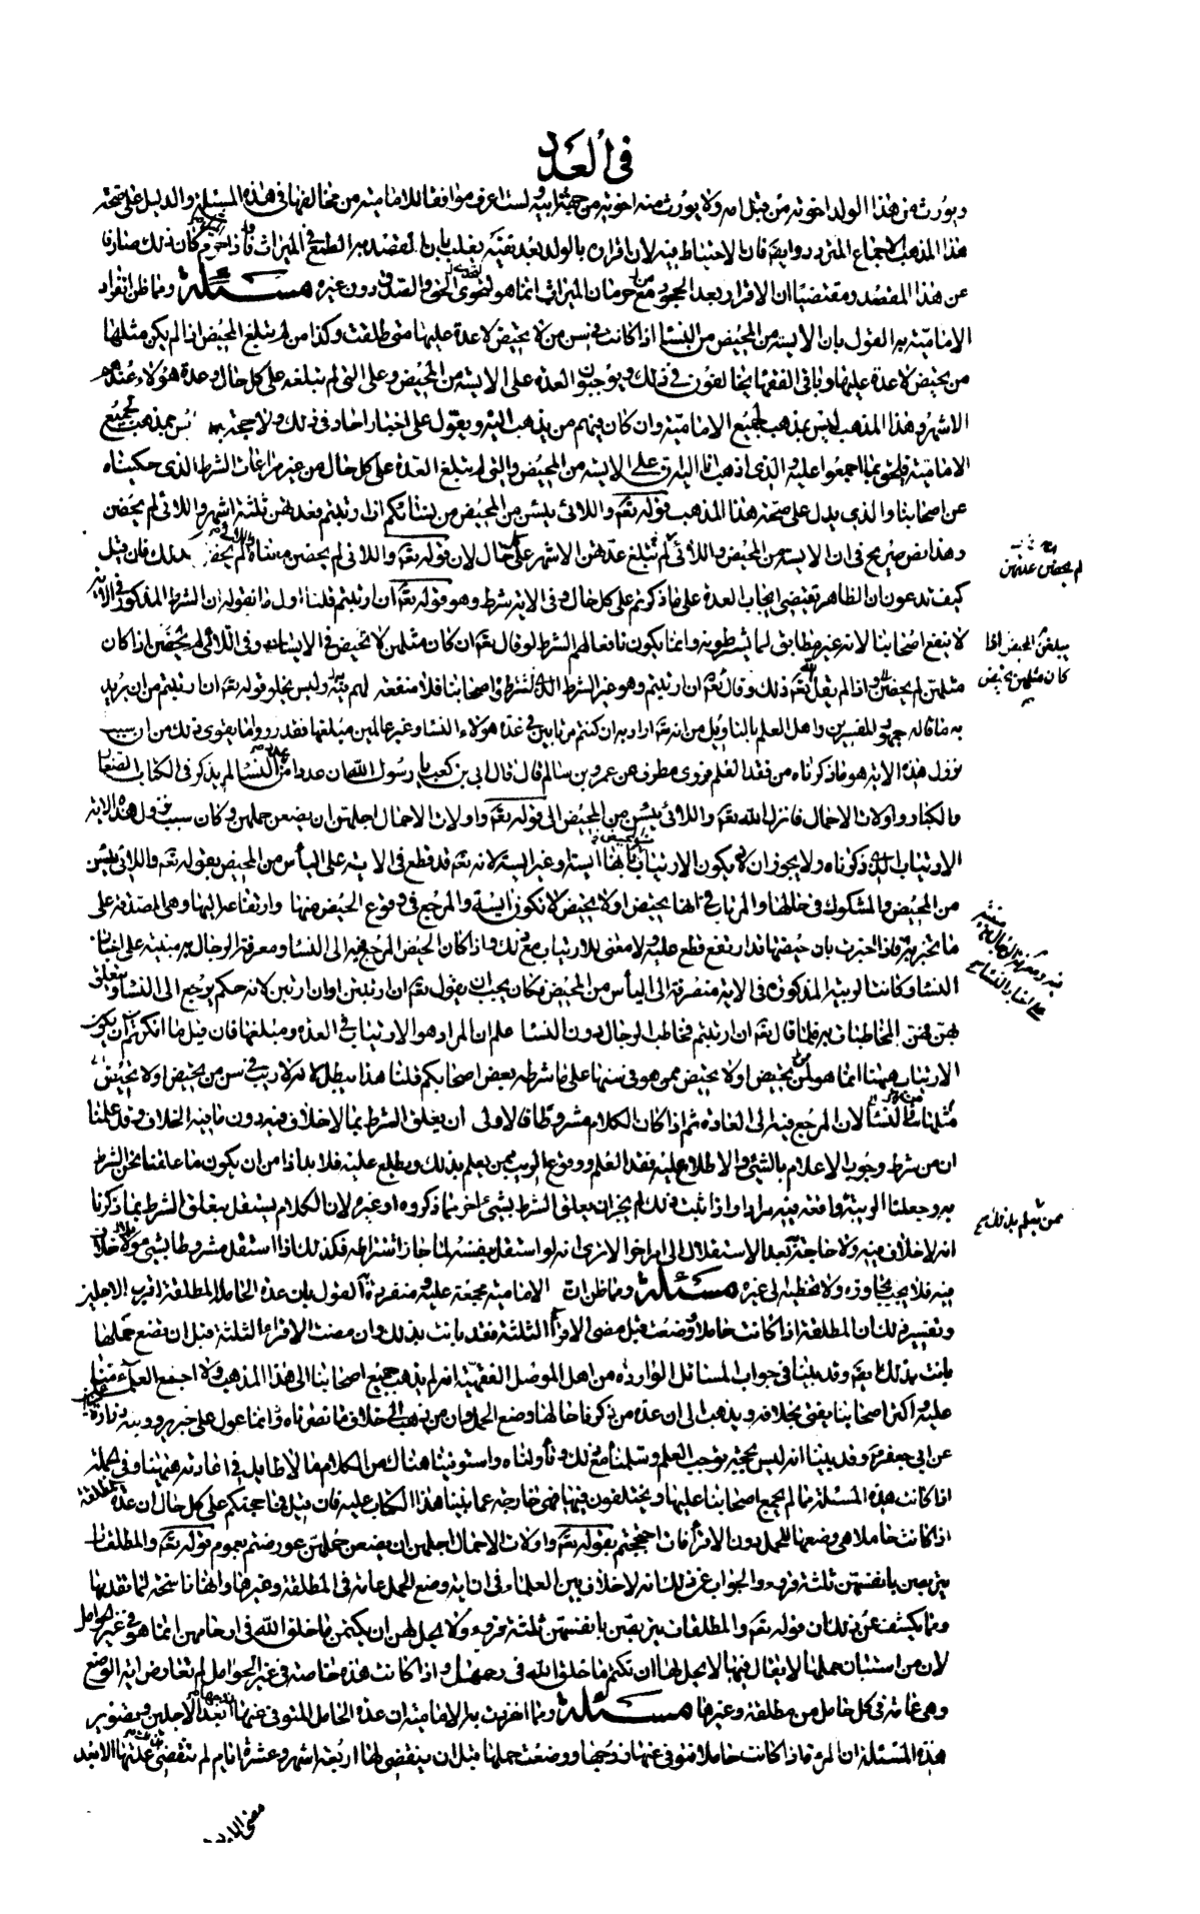 فى العدد
ويورث من هذا الولد اخوته من قبل امه ولا يورث منه اخوته من جهة ابيه ولست اعرف موافقا للامامية من مخالفيها فى هذه المسئلة والدليل على صحة
هذا المذهب الاجماع المتردد وايضا فان الاحتياط فيه لان اقراره بالولد بعد نفيه يغلب بان القصد به الطمع فى الميراث فاذا حرم كان ذلك صارفا
عن هذا المقصد ومقتضيا ان الاقرار بعد الجحود مع حرمان الميراث انما هو لتحرى الحق والصدق دون غيره مسئلة ومما ظن انفراد
الامامية به القول بان الايسة من المحيض من النساء اذا كانت فى سن من لا يحيض لا عدة عليها متى طلقت وكذا من لم يبلغ المحيض اذا لم يكن مثلها
من يحيض لا عدة عليها وباقى الفقهاء يخالفون فى ذلك ويوجبون العدة على الايسة من المحيض وعلى التى لم تبلغه على كل حال وعدة هؤلاء عندهم
الاشهر وهذا المذهب ليس بمذهب لجميع الامامية وان كان فيهم من يذهب اليه ويعول على اخبار احاد فى ذلك ولا حجة به وليس بمذهب لجميع
الامامية فيلحق بما اجمعوا عليه والذى اذهب انا اليه ان على الايسة من المحيض والتى لم تبلغ العدة على كل حال من غير مراعاة الشرط الذى حكيناه
عن اصحابنا والذى يدل على صحة هذا المذهب قوله تعه واللائى يئسن من المحيض من نسائكم ان ارتبتم فعدتهن ثلثة اشهر واللائى لم يحضن
وهذا نص صريح فى ان الايسة من المحيض واللائى لم تبلغ عدتهن الاشهر على كل حال لان قوله تعه واللائى لم يحضن معناه واللائى لم يحضن كذلك فان قيل
كيف تدعون ان الظاهر يقتضى ايجاب العدة على ما ذكرتم على كل حال وفى الاية شرط وهو قوله تعه ان ارتبتم قلنا اول ما نقوله ان الشرط المذكور فى الاية
لا ينفع اصحابنا لانه غير مطابق لما يشترطونه وانما يكون نافعا لهم الشرط لو قال تعه ان كان مثلهن لا تحيض فى الايسات وفى اللائى لم يحضن اذا كان
مثلهن لم يحضن واذا لم يقل تعه ذلك وقال تعه ان ارتبتم وهو غير الشرط الذى شرط اصحابنا فلا منفعة لهم فيه وليس يخلو قوله تعه ان ارتبتم من ان يريد
به ما قاله جمهور المفسرين واهل العلم بالتاويل من انه تعه اراد به ان كنتم مرتابين فى عدة هؤلاء النساء وغير عالمين مبلغها فقد رووا ما يقوى ذلك من ان سبب
نزول هذه الاية هو ما ذكرناه من فقد العلم فروى مطرف عن عمرو بن سالم قال قال ابى بن كعب يا رسول الله ان عددا من النساء لم يذكر فى الكتاب الصغار
والكبار واولات الاحمال فانزل الله تعه واللائى يئسن من المحيض الى قوله تعه واولات الاحمال اجلهن ان يضعن حملهن وكان سبب نزول هذه الاية
الارتياب الذى ذكرناه ولا يجوز ان يكون الارتياب بانها ايسة او غير ايسة لانه تعه قد قطع فى الاية على الياس من المحيض بقوله تعه واللائى يئسن
من المحيض والمشكوك فى حالها والمرتاب فى انها يحيض او لا يحيض لا تكون ايسة والمرجع فى وقوع الحيض منها وارتفاعه اليها وهى المصدقة على
ما تخبر به فاذا اخبرت بان حيضها قد ارتفع قطع عليه ولا معنى للارتياب مع ذلك واذا كان الحيض المرجع فيه الى النساء ومعرفة الرجال به مبنية على اخبار
النساء وكانت الريبة المذكورة فى الاية منصرفة الى الياس من المحيض فكان يجب ان يقول تعه ان ارتبتن او ان ارتبن لانه حكم يرجع الى النساء ويتعلق
بهن فهن المخاطبات به فلما قال تعه ان ارتبتم فخاطب الرجال دون النساء علم ان المراد هو الارتياب فى العدة ومبلغها فان قيل ما انكرتم ان يكون
الارتياب ههنا انما هو بمن يحيض او لا يحيض ممن هو فى سنها على ما شرطه بعض اصحابكم قلنا هذا يبطل لانه لا ريب فى سن من يحيض او لا يحيض
مثلها من النساء لان المرجع فيه الى العادة ثم اذا كان الكلام مشروطا فالاولى ان يعلق الشرط بما لا خلاف فيه دون ما فيه الخلاف وقد علمنا
ان من شرط وجوب الاعلام بالشئ والاطلاع عليه فقد العلم ووقوع الريب ممن يعلم بذلك ويطلع عليه فلا بد اذا من ان يكون ما علقنا نحن الشرط
به وجعلنا الريبة واقعة فيه مرادا واذا ثبت ذلك لم يجز ان يعلق الشرط بشئ اخر مما ذكروه او غيره لان الكلام يستقل بتعلق الشرط بما ذكرنا
انه لا خلاف فيه ولا حاجة بعد الاستقلال الى امر اخر الا ترى انه لو استقل بنفسه لما جاز اشتراطه فكذلك اذا استقل مشروطا بشئ لا خلاف
فيه فلا يجب تجاوزه ولا تخطيه الى غيره مسئلة ومما ظن ان الامامية مجمعة عليه ومنفردة به القول بان عدة الحامل المطلقة اقرب الاجلين
وتفسير ذلك ان المطلقة اذا كانت حاملا ووضعت قبل مضى الاقراء الثلثة فقد بانت بذلك وان مضت الاقراء الثلثة قبل ان تضع حملها
بانت بذلك ايضا وقد بينا فى جواب المسائل الواردة من اهل الموصل الفقهية انه لم يذهب جميع اصحابنا الى هذا المذهب ولا اجمع العلماء منا
عليه واكثر اصحابنا يفتى بخلافه ويذهب الى ان عدة من ذكرنا حالها وضع الحمل وان من ذهب الى خلاف ما نصرناه انما عول على خبر يرويه زرارة
عن ابى جعفر وقد بينا انه ليس بحجة توجب العلم وسلمناه مع ذلك وتاولناه واستوفينا هناك من الكلام ما لا طايل فى اعادته ههنا وفى الجملة
اذا كانت هذه المسئلة مما لم يجمع اصحابنا عليها ويختلفون فيها فهى خارجة عما بنينا هذا الكتاب عليه فان قيل فما حجتكم على كل حال ان عدة المطلقة
اذا كانت حاملا هى وضعها للحمل دون الاقراء فان احتججتم بقوله تعه واولات الاحمال اجلهن ان يضعن حملهن عورضتم بعموم قوله تعه والمطلقات
يتربصن بانفسهن ثلثة قروء والجواب عن ذلك انه لا خلاف بين العلماء فى ان اية وضع الحمل عامة فى المطلقة وغيرها وانها ناسخة لما تقدمها
ومما يكشف عن ذلك ان قوله تعه والمطلقات يتربصن بانفسهن ثلثة قروء ولا يحل لهن ان يكتمن ما خلق الله فى ارحامهن انما هو فى غير الحوامل
لان من استبان حملها لا يقال فيها لا يحل لها ان تكتم ما خلق الله فى رحمها واذا كانت هذه خاصة فى غير الحوامل لم تعارض اية الوضع
وهى عامة فى كل حامل من مطلقة وغيرها مسئلة ومما انفردت به الامامية ان عدة الحامل المتوفى عنها زوجها ابعد الاجلين وتصوير
هذه المسئلة ان المرءة اذا كانت حاملا فتوفى عنها زوجها ووضعت حملها قبل ان ينقضى لها اربعة اشهر وعشرة ايام لم تنقضى عدتها الا بعد
لم يحضن عدتهن
يبلغن المحيض اذا
كان مثلهن يحيض
فيه ومعرفة الرجال به مبنية
على اخبار النساء
ممن يعلم بذلك